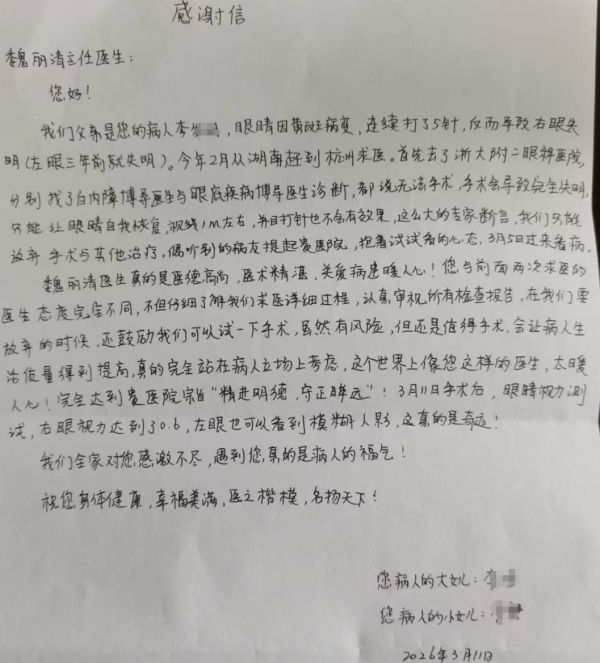 感谢信
魏丽清主任医生：
您好！
我们父亲是您的病人李，眼睛因黄斑病变，连续打了5针，反而导致右眼失
明（左眼三年前就失明）。今年2月从湖南赶到杭州求医。首先去了浙大附二眼科医院，
分别找了白内障博导医生与眼底疾病博导医生诊断，都说无法手术，手术会导致完全失明，
只能让眼睛自我恢复，视线1M左右，并且打针也不会有效果，这么大的专家断言，我们只能
放弃手术与其他治疗。偶听别的病友提起贵医院，抱着试试看的心态，3月5日过来看病。
魏丽清医生真的是医德高尚，医术精湛，关爱病患暖人心！您与前面两次求医的
医生态度完全不同，不但仔细了解我们求医详细过程，认真审视所有检查报告，在我们要
放弃的时候，还鼓励我们可以试一下手术，虽然有风险，但还是值得手术，会让病人生
活质量得到提高，真的完全站在病人立场上考虑，这个世界上像您这样的医生，太暖
人心！完全达到贵医院宗旨“精进明德，守正眸远”！3月11日手术后，眼睛视力测
试，右眼视力达到了0.6，左眼也可以看到模糊人影，这真的是奇迹！
我们全家对您感激不尽，遇到您真的是病人的福气！
祝您身体健康，幸福美满，医之楷模，名扬天下！
您病人的大女儿：李
您病人的小女儿：李
2026年3月11日